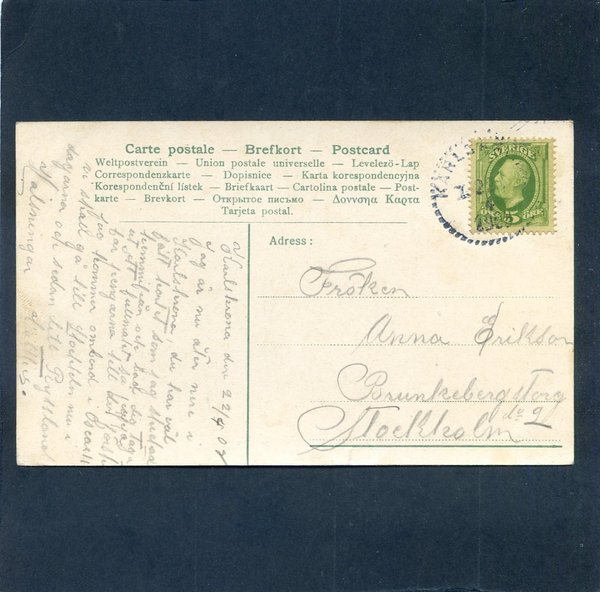 Carte postale — Brefkort — Postcard
Weltpostverein — Union postale universelle — Levelező-Lap
Correspondenzkarte — Dopisnice — Karta korespondencyjna
Korespondenční lístek — Briefkaart — Cartolina postale — Post-
karte — Brevkort — Открытое письмо — Δοννσηα Καρτα
Tarjeta postal.
SVERIGE
5 ÖRE
Adress:
Fröken
Anna Erikson
Brunkebergstorg
Stockholm
Karlskrona den 22/4 07
Jag är nu der nere i
Karlskrona, du har väl
fått kortet som jag
hemmifrån och bad dig taga
ut ett
pengarna till
Jag kommer ombord i
vi skall gå till Stockholm nu i
dagarna och sedan till Ryssland
Hälsningar